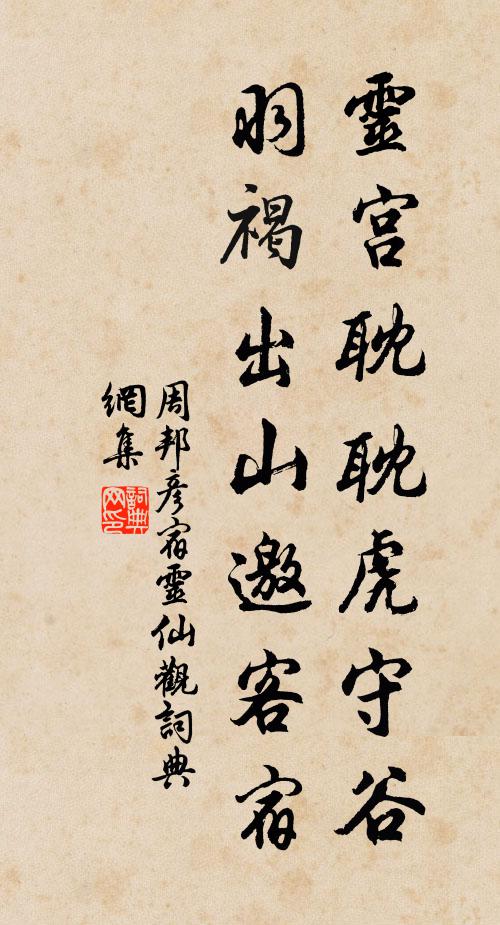 靈宫耽耽虎守谷
羽褐出山邀客宿
周邦彦宿靈仙觀詞典
網集
詞典网印